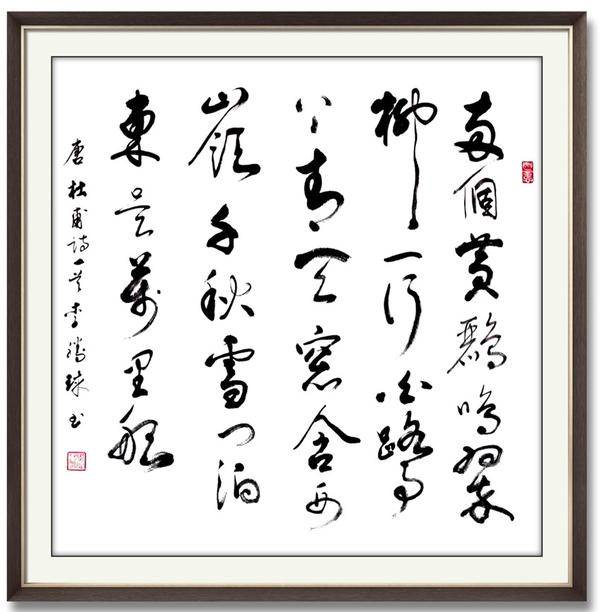 兩個黃鸝鳴翠
柳一行白鷺
上青天窓含西
嶺千秋雪門泊
東吳萬里船
唐杜甫詩一首李球书